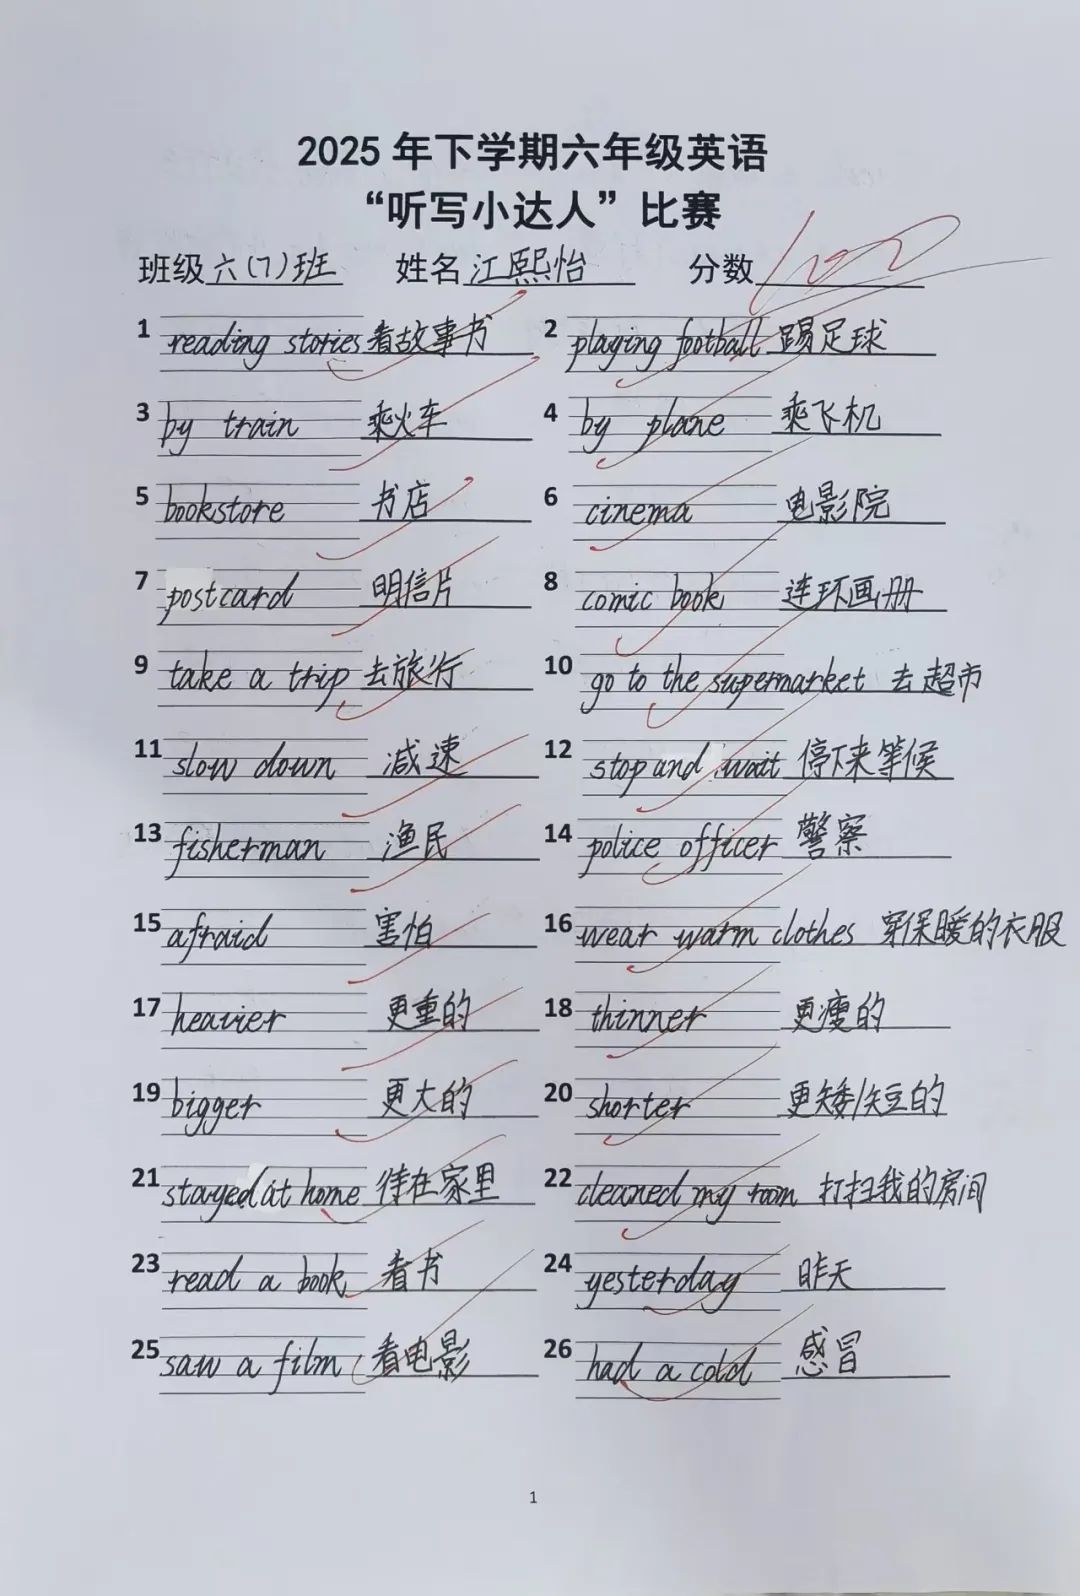 2025 年下学期六年级英语
“听写小达人”比赛
班级 六(7)班 姓名 江熙怡 分数 100
1 reading stories 看故事书 2 playing football 踢足球
3 by train 乘火车 4 by plane 乘飞机
5 bookstore 书店 6 cinema 电影院
7 postcard 明信片 8 comic book 连环画册
9 take a trip 去旅行 10 go to the supermarket 去超市
11 slow down 减速 12 stop and wait 停下来等候
13 fisherman 渔民 14 police officer 警察
15 afraid 害怕 16 wear warm clothes 穿保暖的衣服
17 heavier 更重的 18 thinner 更瘦的
19 bigger 更大的 20 shorter 更矮/短的
21 stayed at home 待在家里 22 cleaned my room 打扫我的房间
23 read a book 看书 24 yesterday 昨天
25 saw a film 看电影 26 had a cold 感冒
1